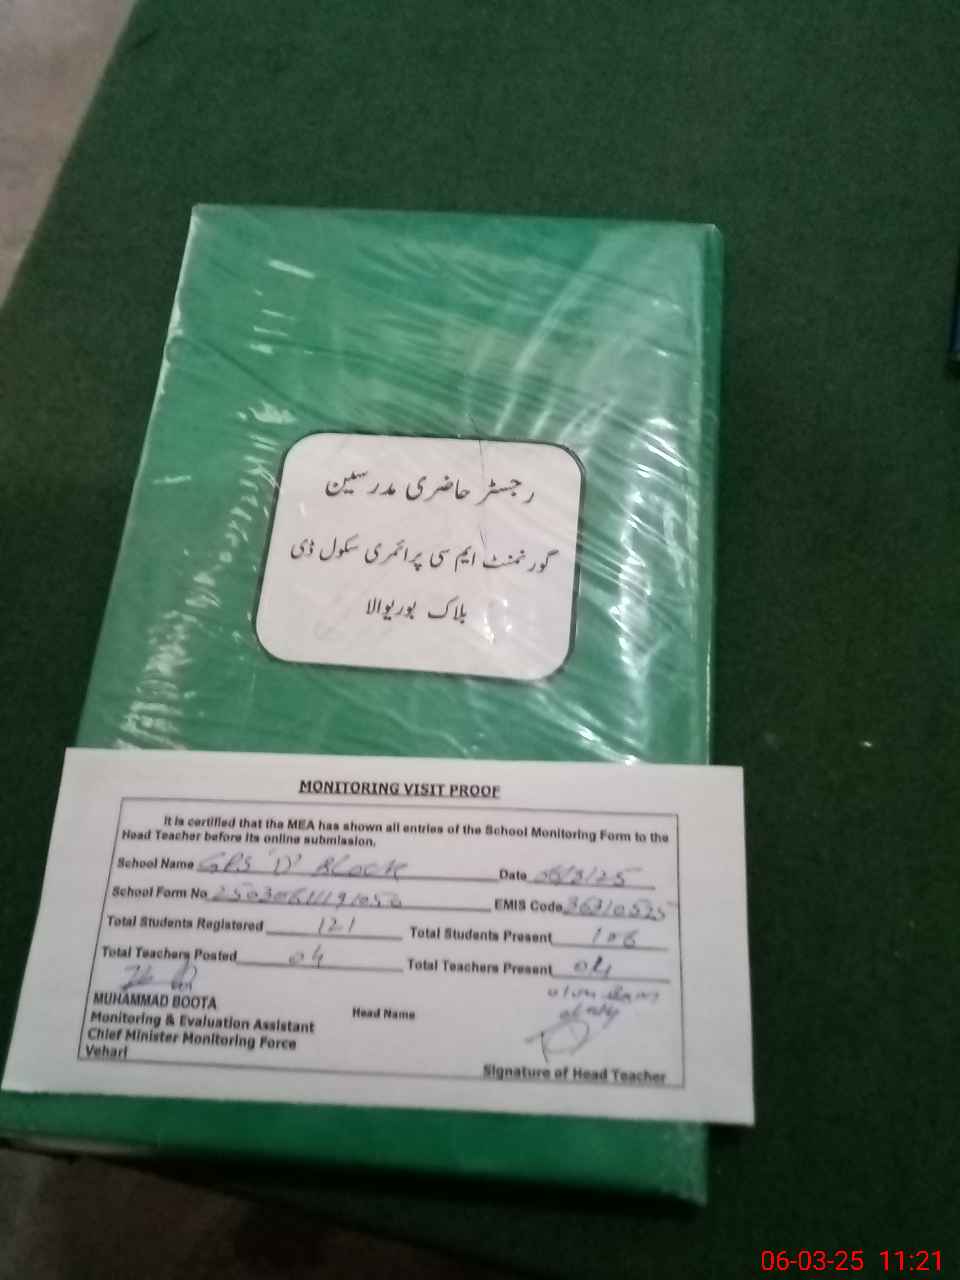 رجسٹر حاضری مدرسین
گورنمنٹ ایم سی پرائمری سکول ڈی
بلاک بوریوالا
MONITORING VISIT PROOF
It is certified that the MEA has shown all entries of the School Monitoring Form to the
Head Teacher before its online submission.
School Name GPS 'D' Block Date 06/3/25
School Form No EMIS Code 36310525
Total Students Registered 121 Total Students Present 106
Total Teachers Posted 04 Total Teachers Present 04
MUHAMMAD BOOTA
Monitoring & Evaluation Assistant
Chief Minister Monitoring Force
Vehari
Head Name
Signature of Head Teacher
06-03-25 11:21